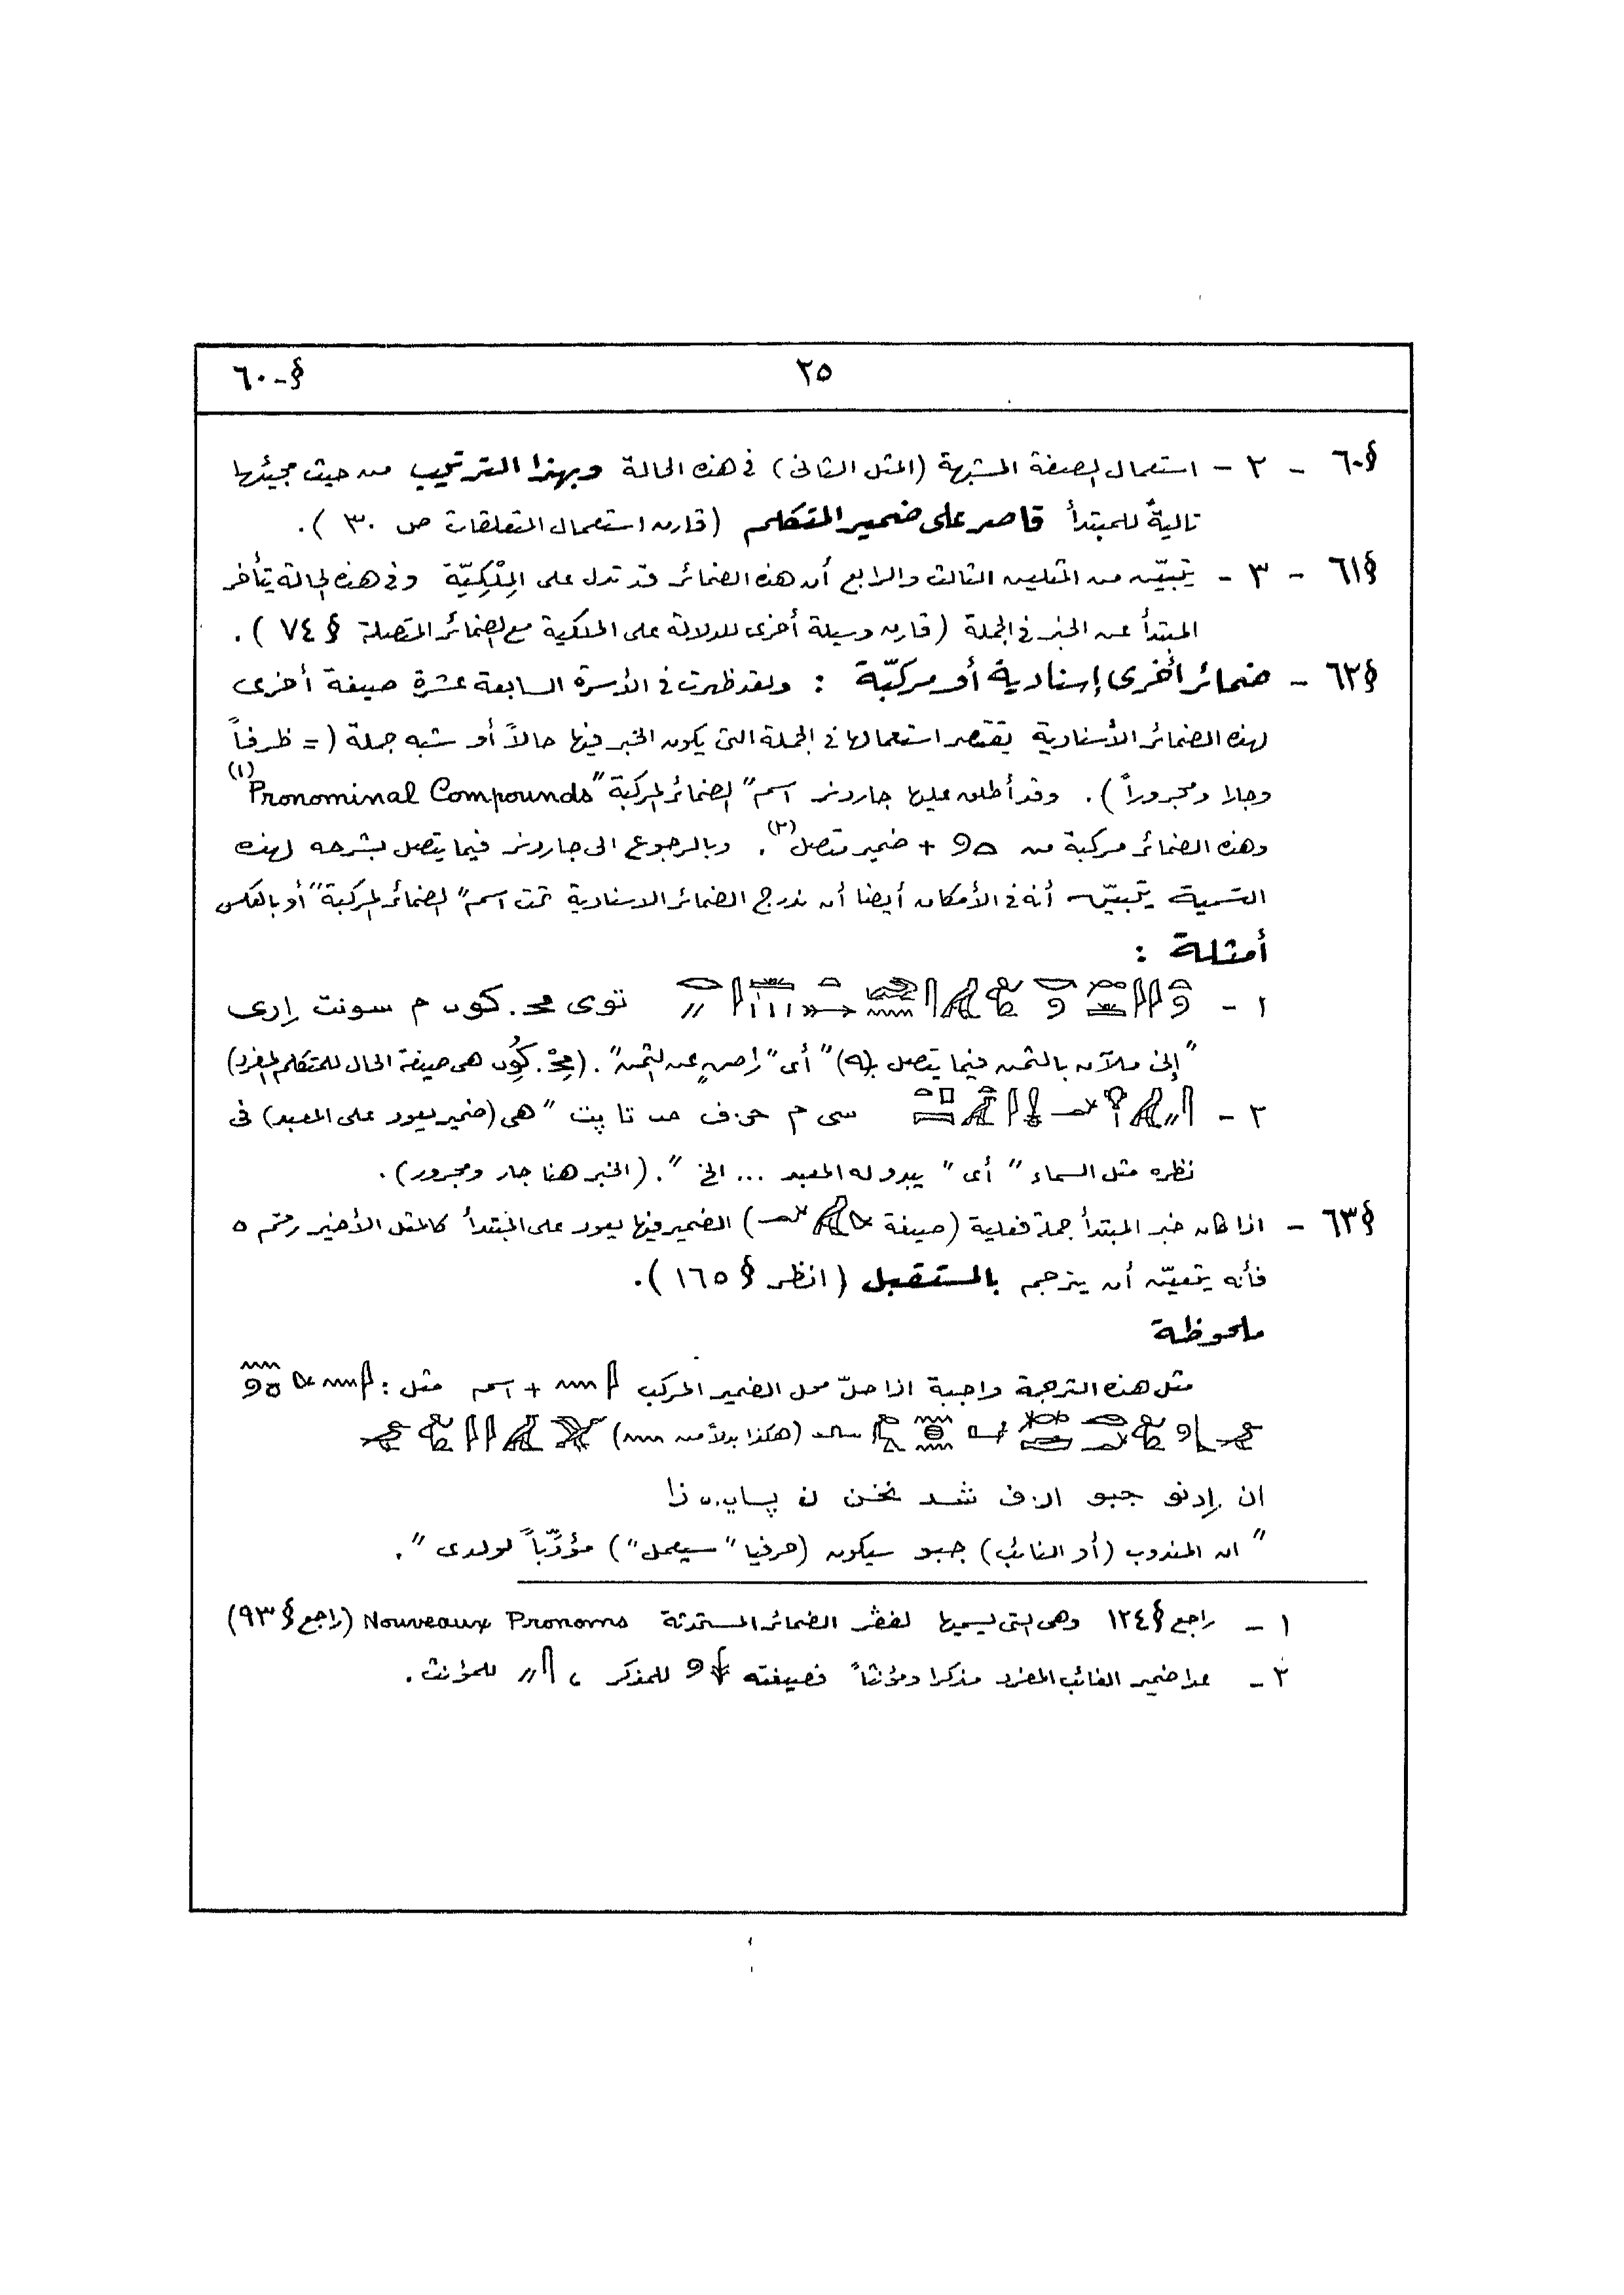 §-٦٠
٢٥
§٦٠ - ٢ - استعمال الصفة المشبهة (المثل الثانى) فى هذه الحالة وبهذا الترتيب من حيث مجيئها
تاليةً للمبتدأ قاصر على ضمير المتكلم (قارن استعمال المتعلقات ص ٣٠ ).
§٦١ - ٣ - يتبيّن من المثلين الثالث والرابع أن هذه الضمائر قد تدل على المِلْكِيّة وفى هذه الحالة يتأخر
المبتدأ عن الخبر فى الجملة (قارن وسيلة أخرى للدلالة على الملكية مع الضمائر المتصلة § ٧٤ ).
§٦٢ - ضمائر أخرى إسنادية أو مركبّة : ولقد ظهرت فى الأسرة السابعة عشرة صيغة أخرى
لهذه الضمائر الأسنادية يقتصر استعمالها فى الجملة التى يكون الخبر فيها حالاً أو شبه جملة (= ظرفاً
وجارا ومجروراً ). وقد أطلق عليها جاردنر اسم "الضمائر المركبة" Pronominal Compounds (١)
وهذه الضمائر مركبة من + ضمير متصل (٢). وبالرجوع الى جاردنر فيما يتصل بشرحه لهذه
التسمية يتبيّن أنه فى الأمكان أيضا أن ندرج الضمائر الاسنادية تحت اسم "الضمائر المركبة" أو بالعكس
أمثلة :
١ - توى مح. كون م سونت إرى
"إنى ملآن بالثمن فيما يتصل به" أى "راضٍ عن الثمن". ( هى صيغة الحال للمتكلم المفرد)
٢ - سى م حى.ف تا پت "هى (ضمير يعود على المعبد) فى
نظره مثل السماء" أى "يبدو له المعبد ... الخ". (الخبر هنا جار ومجرور).
§٦٣ - اذا كان خبر المبتدأ جملة فعلية (صيغة ) الضمير فيها يعود على المبتدأ كالمثل الأخير رقم ٥
فأنه يتعيّن أن يترجم بالمستقبل (انظر § ١٦٥ ).
ملحوظة
مثل هذه الترجمة واجبة اذا حلّ محل الضمير المركب + اسم مثل :
(هكذا بدلاً من )
ان إدنو جبو ار.ف شد نخن ن پاى.ى زا
"ان المندوب (أو النائب) جبو سيكون (حرفيا "سيعمل") مؤدّباً لولدى".
١ - راجع § ١٢٤ وهى التى يسميها لفڤر الضمائر المستحدثة Nouveaux Pronoms (راجع § ٩٣)
٢ - عدا ضمير الغائب المفرد مذكرا ومؤنثاً فصيغته للمذكر ، للمؤنث.